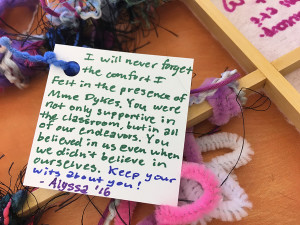 I will never forget
the comfort I
felt in the presence of
Mme Dykes. You were
not only supportive in
the classroom, but in all
of our endeavors. You
believed in us even when
we didn't believe in
ourselves. Keep your
wits about you!
- Alyssa '16